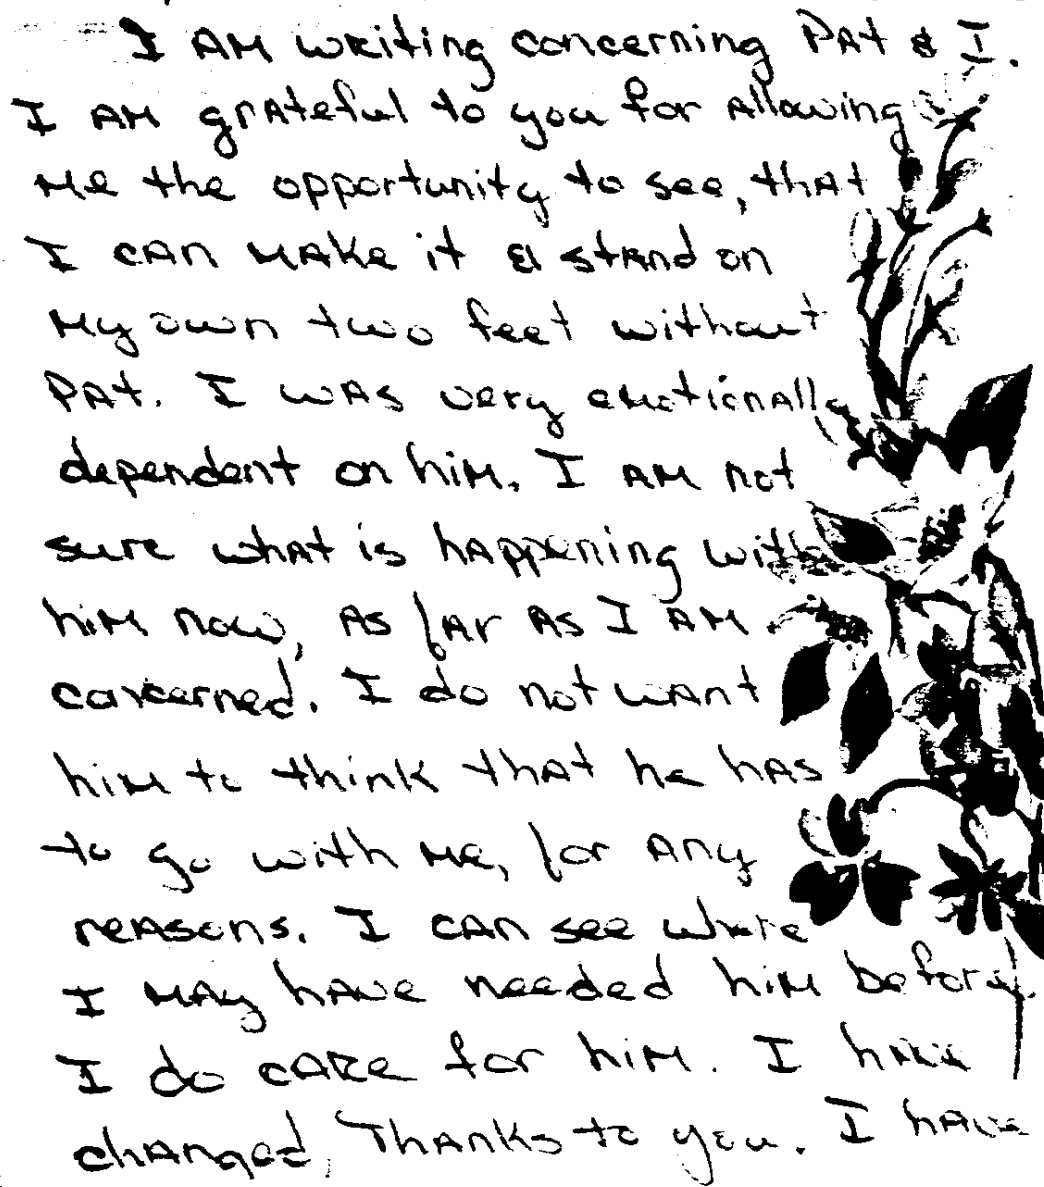 I AM writing concerning PAt & I.
I AM grAteful to you for Allowing
Me the opportunity to see, thAt
I cAn MAke it & stAnd on
My own two feet without
PAt. I wAs very emotionAlly
dependent on hiM. I AM not
sure whAt is hAppening with
hiM now, As fAr As I AM
concerned. I do not wAnt
hiM to think thAt he hAs
to go with Me, for Any
reAsons. I cAn see where
I MAy hAve needed hiM before.
I do cARe for hiM. I hAve
chAnged, ThAnks to you. I hAve